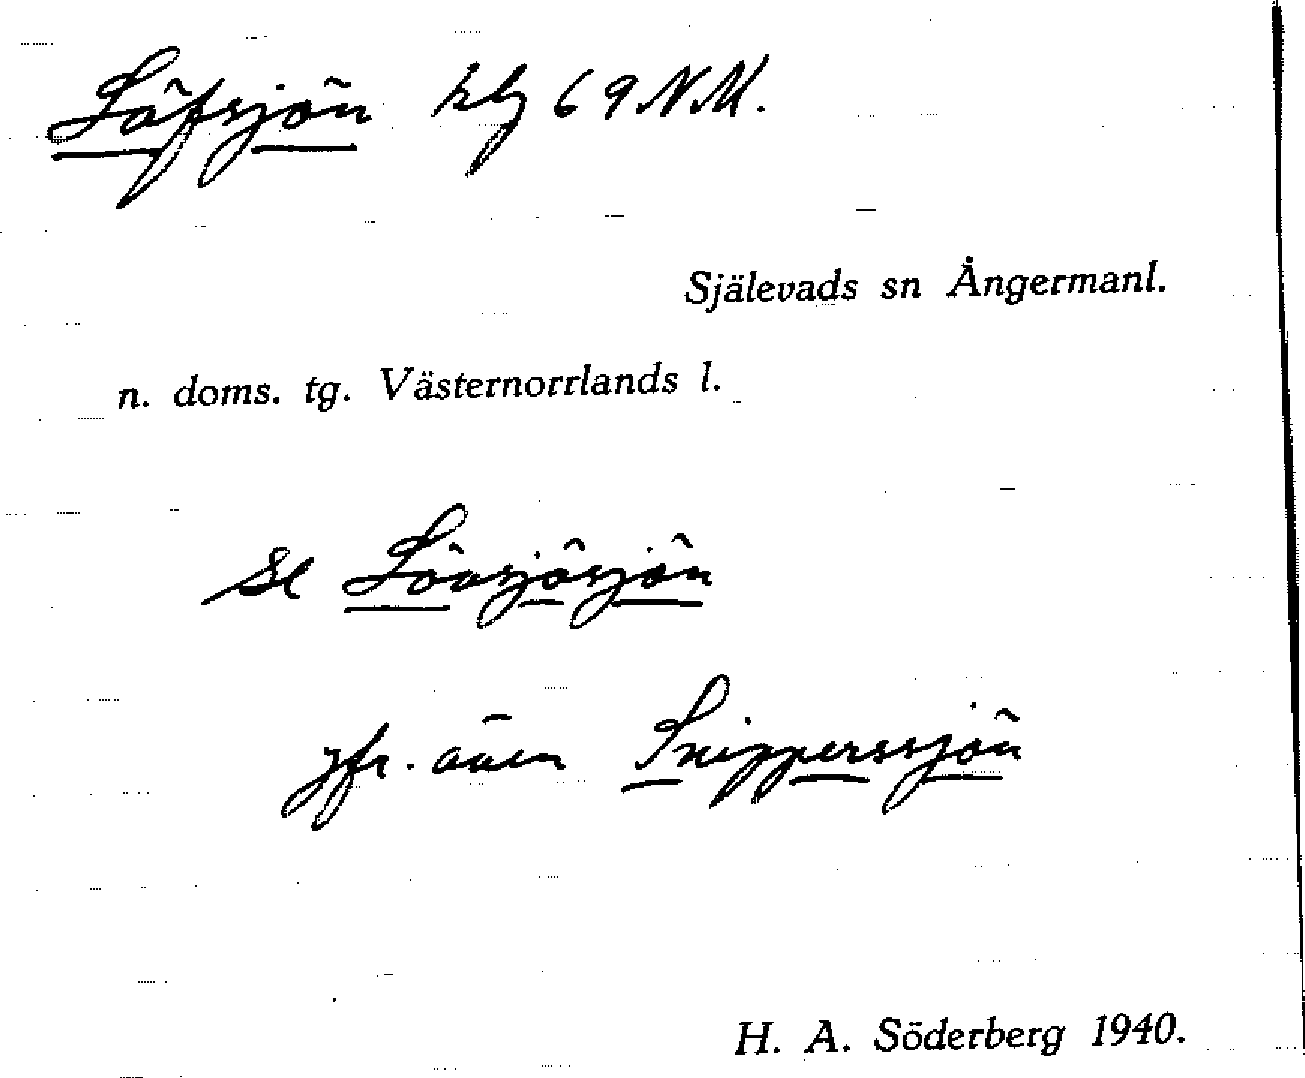 Löfsjön kbg 69 N.M.
Själevads sn Ångermanl.
n. doms. tg. Västernorrlands l.
se Lövsjösjön
jfr. även Snipperssjön
H. A. Söderberg 1940.